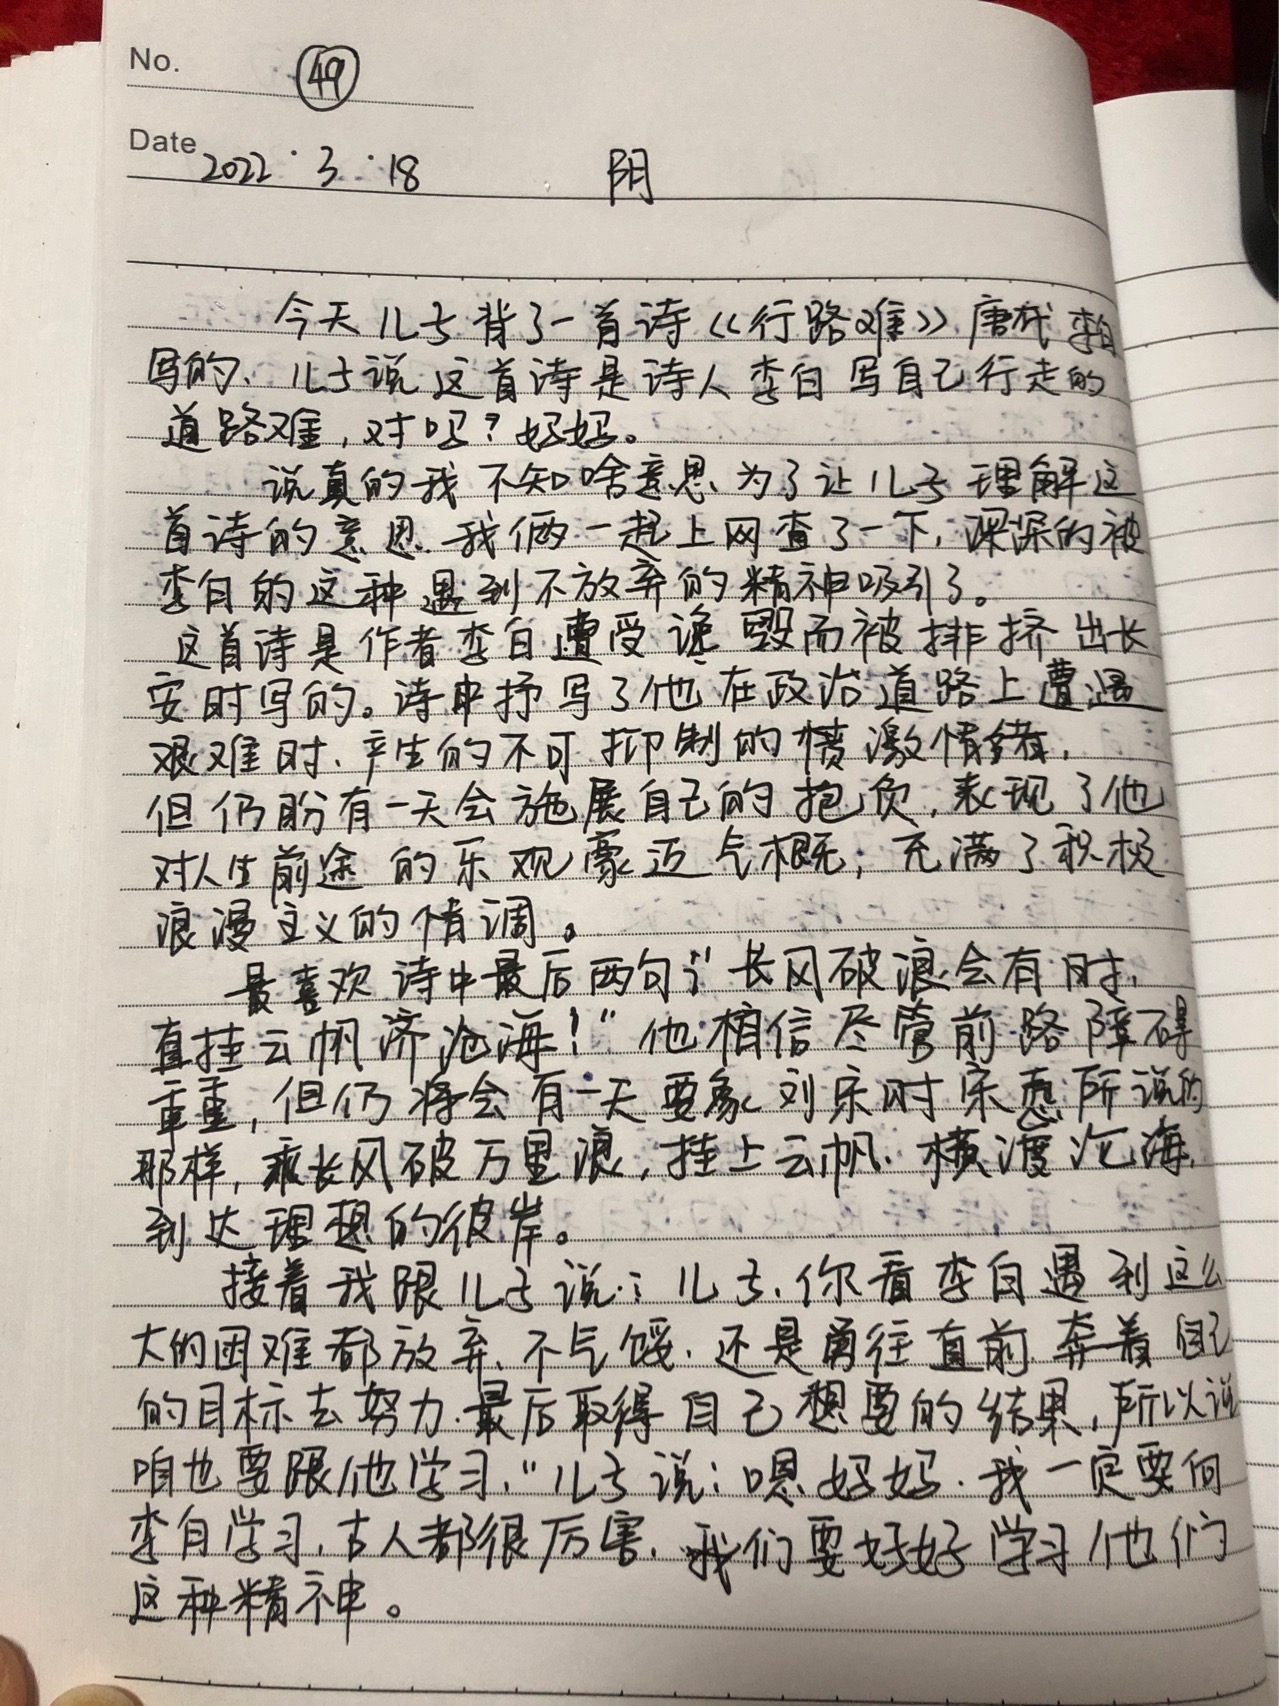 No. 49
Date 2022.3.18 阴
今天儿子背了一首诗《行路难》唐代李白
写的、儿子说这首诗是诗人李白写自己行走的
道路难,对吗?妈妈。
说真的我不知啥意思为了让儿子理解这
首诗的意思.我俩一起上网查了一下,深深的被
李白的这种遇到不放弃的精神吸引了。
这首诗是作者李白遭受谗毁而被排挤出长
安时写的。诗中抒写了他在政治道路上遭遇
艰难时、产生的不可抑制的愤激情绪,
但仍盼有一天会施展自己的抱负,表现了他
对人生前途的乐观豪迈气概,充满了积极
浪漫主义的情调。
最喜欢诗中最后两句:"长风破浪会有时,
直挂云帆济沧海!"他相信尽管前路障碍
重重,但仍将会有一天要象刘宋时宗悫所说的
那样,乘长风破万里浪,挂上云帆、横渡沧海,
到达理想的彼岸。
接着我跟儿子说:儿子、你看李白遇到这么
大的困难都放弃、不气馁、还是勇往直前奔着自己
的目标去努力.最后取得自己想要的结果,所以说
咱也要跟他学习,"儿子说:嗯妈妈.我一定要向
李白学习,古人都很厉害、我们要好好学习他们
这种精神。